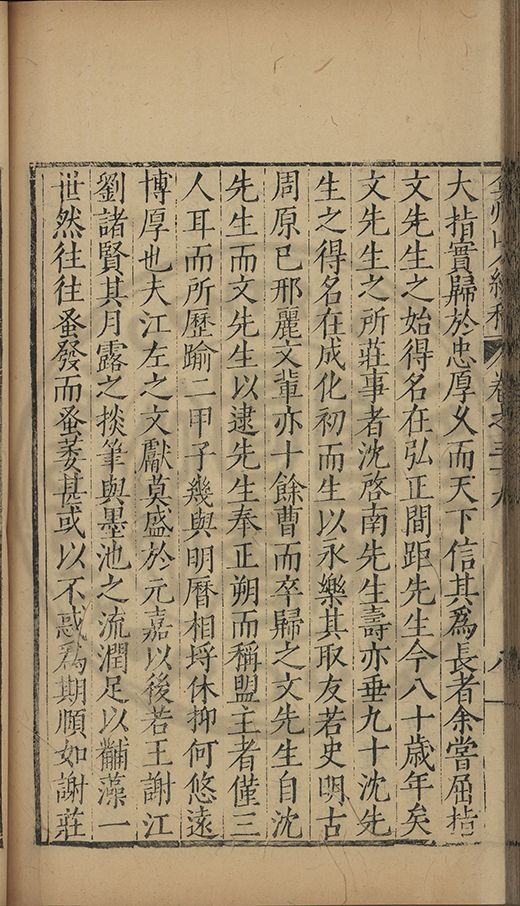 弇州山人續稿 卷之三十九 八
大指實歸於忠厚久而天下信其爲長者余嘗屈指
文先生之始得名在弘正間距先生今八十歲年矣
文先生之所莊事者沈啓南先生壽亦垂九十沈先
生之得名在成化初而生以永樂其取友若史明古
周原已邢麗文輩亦十餘曹而卒歸之文先生自沈
先生而文先生以逮先生奉正朔而稱盟主者僅三
人耳而所歷踰二甲子幾與明曆相埒休抑何悠遠
博厚也夫江左之文獻莫盛於元嘉以後若王謝江
劉諸賢其月露之掞筆與墨池之流潤足以黼藻一
世然往往蚤發而蚤萎甚或以不惑爲期順如謝莊